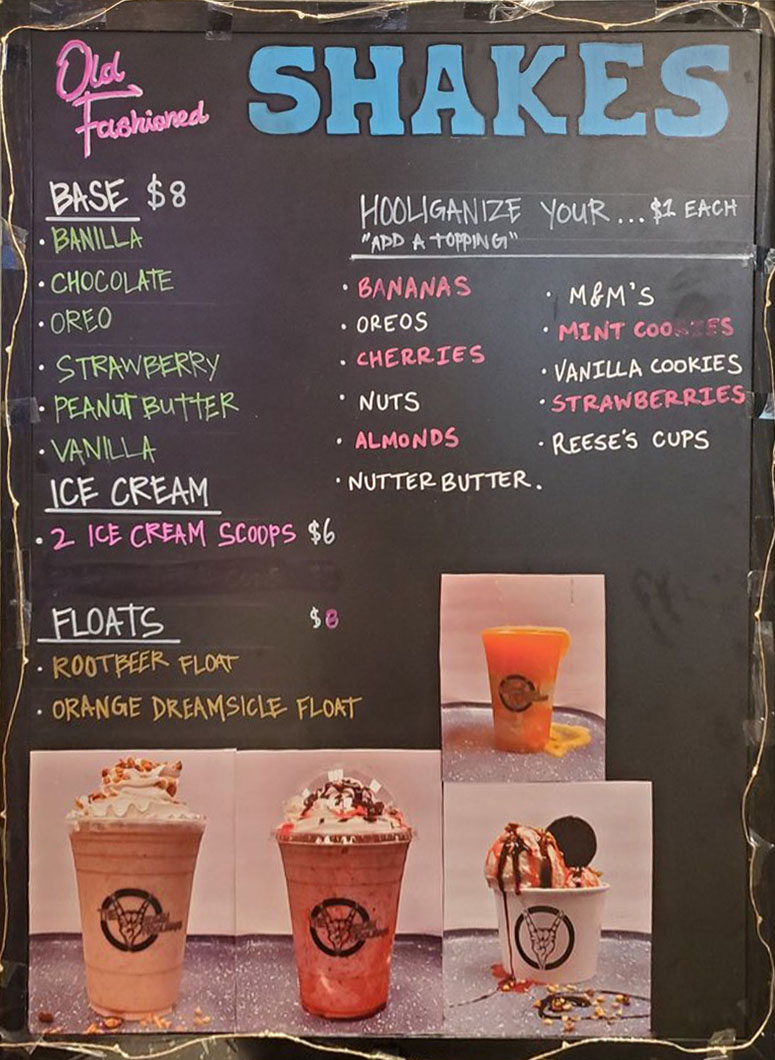 Old
Fashioned
SHAKES
BASE $8
• BANILLA
• CHOCOLATE
• OREO
• STRAWBERRY
• PEANUT BUTTER
• VANILLA
ICE CREAM
• 2 ICE CREAM SCOOPS $6
FLOATS $8
• ROOTBEER FLOAT
• ORANGE DREAMSICLE FLOAT
HOOLIGANIZE YOUR... $1 EACH
"ADD A TOPPING"
• BANANAS
• OREOS
• CHERRIES
• NUTS
• ALMONDS
• NUTTER BUTTER.
• M&M'S
• MINT COOKIES
• VANILLA COOKIES
• STRAWBERRIES
• REESE'S CUPS